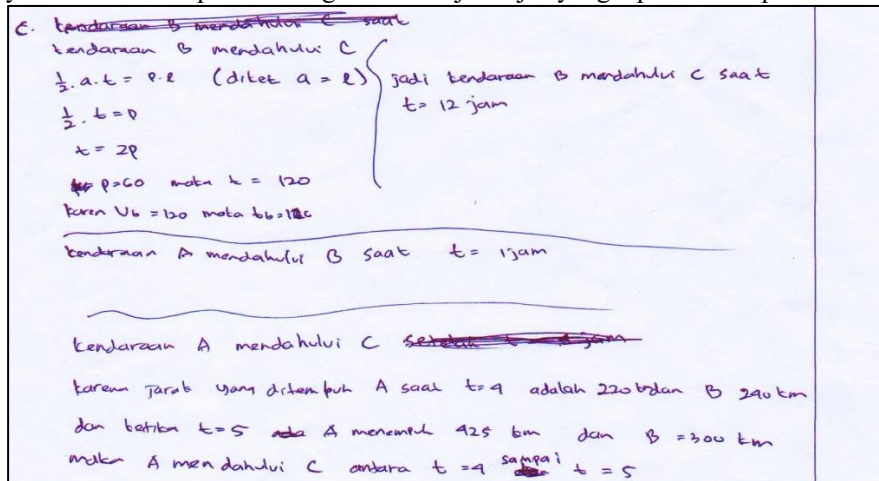 c. kendaraan B mendahului C saat
kendaraan B mendahului C
½. a. t = p. l (diket a = l)
½. t = p
t = 2p
p = 60 maka t = 120
karen Vb = 120 maka
jadi kendaraan B mendahului C saat
t = 12 jam
kendaraan A mendahului B saat t = 1 jam
kendaraan A mendahului C setelah t = 4 jam
karena jarak yang ditempuh A saat t = 4 adalah 220 km dan B 240 km
dan ketika t = 5 A menempuh 425 km dan B = 300 km
maka A mendahului C antara t = 4 sampai t = 5